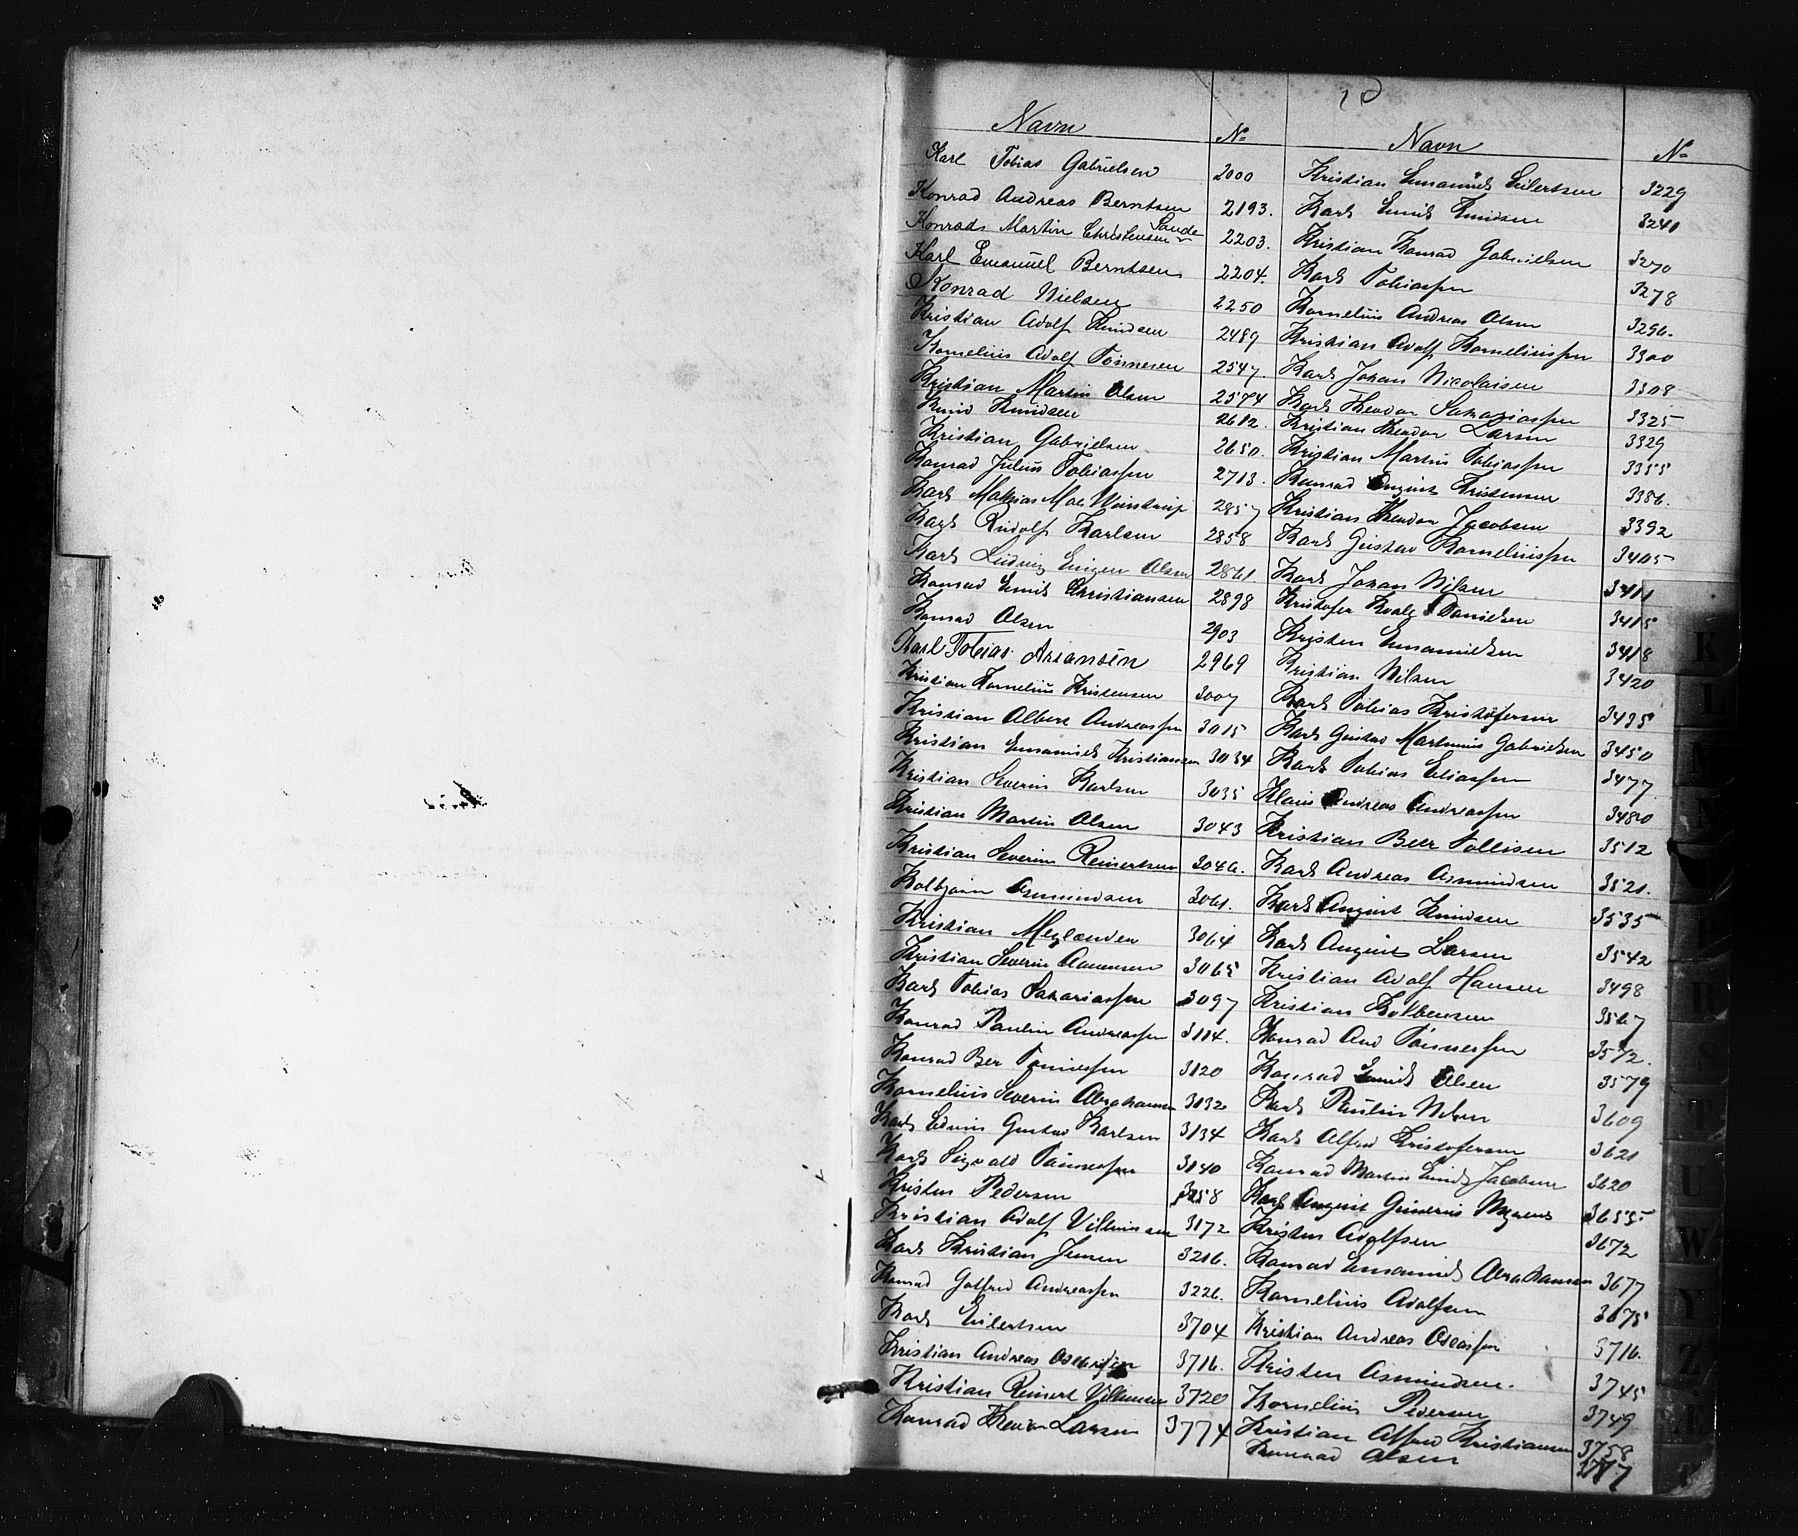 10
Navn No
Karl Tobias Gabrielsen 2000
Konrad Andreas Berntsen 2193.
Konrads Martin Christensen Sande 2203.
Karl Emanuel Berntsen 2204.
Konrad Nielsen 2250
Kristian Adolf Knudsen 2489
Kornelius Adolf Tønnesen 2547.
Kristian Martin Olsen 2574
Knud Knudsen 2612.
Kristian Gabrielsen 2650.
Konrad Julius Tobiassen 2713.
Karl Mathias Moe Winstrup 2857
Karl Rudolf Karlsen 2858
Karl Ludvig Eugen Olsen 2861
Konrad Emil Christiansen 2898
Konrad Olsen 2903
Karl Tobias Aslansen 2969
Kristian Kornelius Kristensen 3007
Kristian Albert Andreassen 3015
Kristian Emanuel Kristiansen 3034
Kristian Severin Karlsen 3035
Kristian Martin Olsen 3043
Kristian Severin Reinertsen 3046.
Kolbjørn Asmundsen 3061.
Kristian Meglænder 3064
Kristian Severin Aanensen 3065
Karl Tobias Sakariassen 3097
Konrad Paulin Andreassen 3114.
Konrad Ber Tønnessen 3120
Kornelius Severin Abrahamsen 3132
Karl Edvin Gustav Karlsen 3134
Karl Sigvald Tønnessen 3140
Kristen Pedersen 3158
Kristian Adolf Vilhumsen 3172
Karl Kristian Jensen 3216.
Konrad Gotfred Andreassen 3226.
Karl Eilertsen 3704
Kristian Andreas Oseassen 3716.
Kristian Reinert Vilhumsen 3720
Konrad Theodor Larsen 3774
Navn No
Kristian Emanuel Eilertsen 3229
Karl Emil Knudsen 3240
Kristian Konrad Gabrielsen 3270
Karl Tobiassen 3278
Kornelius Andreas Olsen 3296.
Kristian Adolf Korneliussen 3300
Karl Johan Nicolaisen 3308
Karl Theodor Sakariassen 3325
Kristian Theodor Larsen 3329
Kristian Martin Tobiassen 3355
Konrad August Kristensen 3386.
Kristian Theodor Jacobsen 3392
Karl Gustav Korneliussen 3405
Karl Johan Nilsen 3411
Kristofer Kvale Danielsen 3415
Kristen Emanuelsen 3418
Kristian Nilsen 3420
Karl Tobias Kristofersen 3435
Karl Gustav Martinius Gabrielsen 3450
Karl Tobias Eliassen 3477
Klaus Andreas Andreassen 3480
Kristian Beer Tollisen 3512
Karl Andreas Asmundsen 3521.
Karl August Knudsen 3535
Karl August Larsen 3542
Kristian Adolf Hansen 3498
Kristian Kolbensen 3567
Konrad And Tønnessen 3572.
Konrad Emil Olsen 3579
Karl Paulin Nilsen 3609
Karl Alfred Kristofersen 3621
Konrad Martin Emil Jacobsen 3620
Karl August Gunerius 3655
Kristen Adolfsen 3672
Konrad Emanuel Abrahamsen 3677
Kornelius Adolfsen 3675
Kristian Andreas Oseassen 3716.
Kristen Asmundsen. 3745
Kornelius Pedersen 3749
Kristian Alfred Kristiansen 3758
Konrad Olsen 3777
K
L
M
N
R
S
T
U
W
Y
Z
Æ